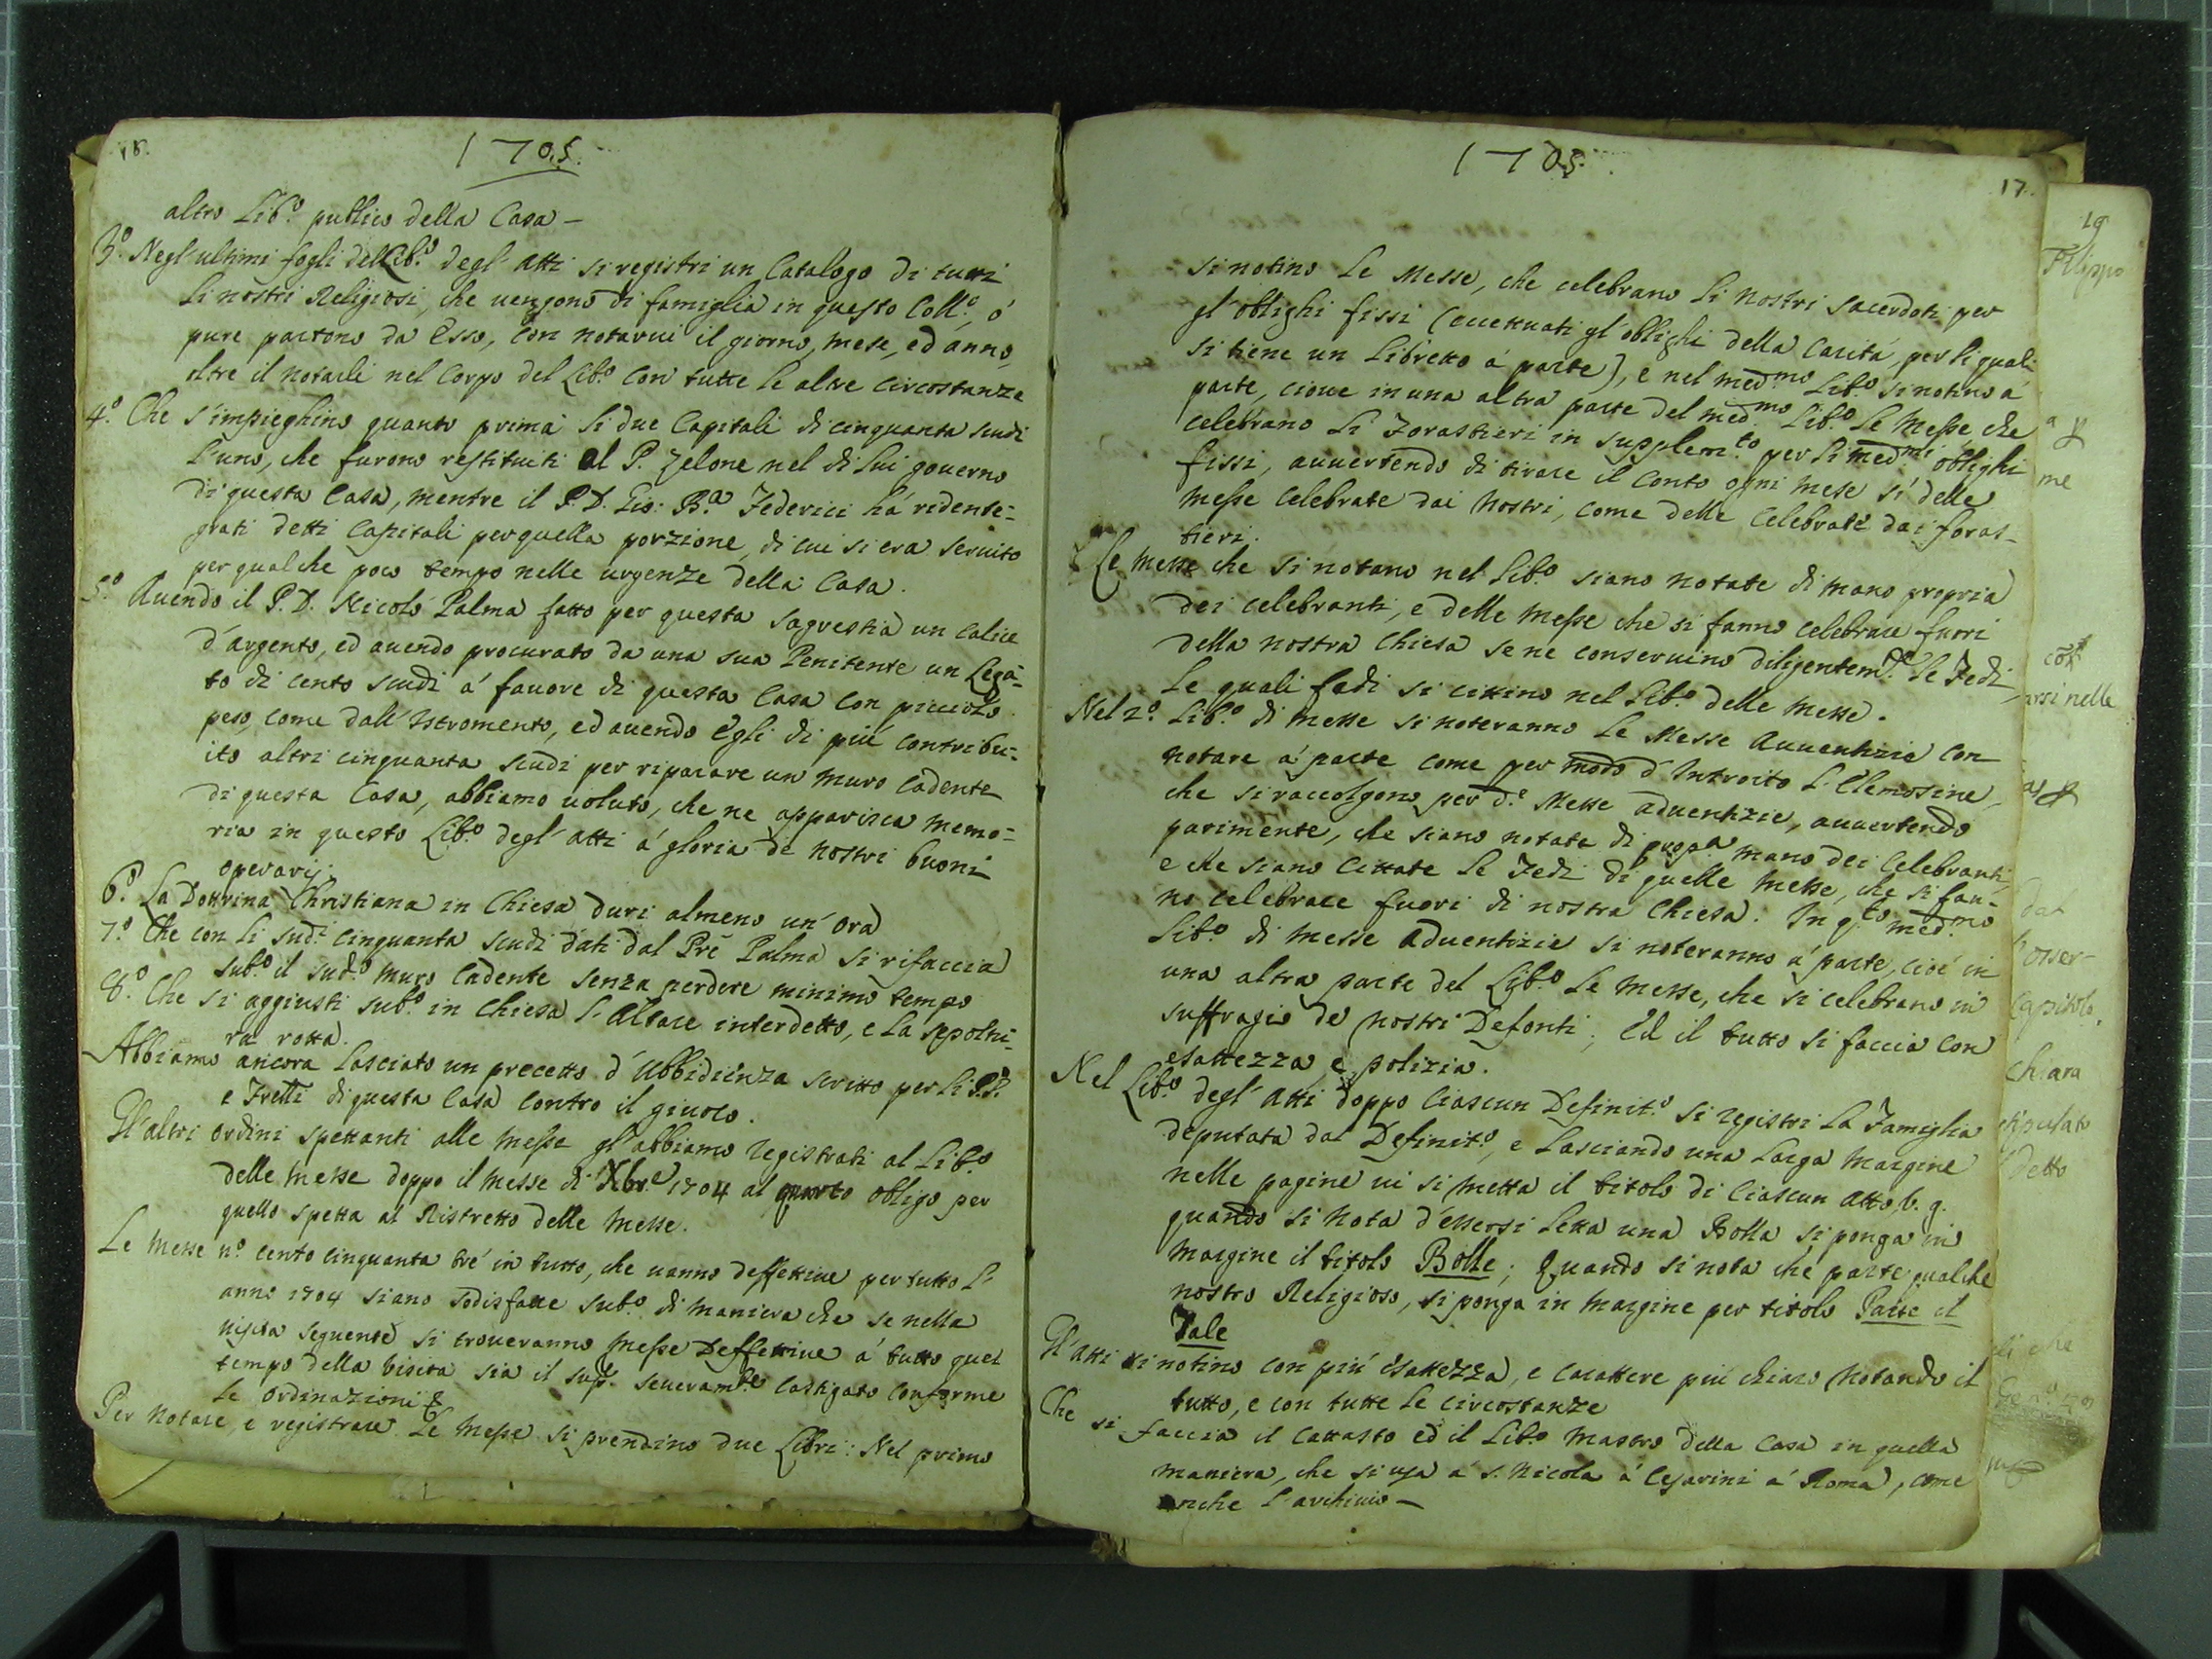 18.
1705.
altro Lib.º publico della Casa —
3.º Negl'ultimi fogli dell Lib.º degl' Atti si registri un Catalogo di tutti
li nostri Religiosi, che uengono di famiglia in questo Coll.º, ó
pure partono da Esso, con notarui il giorno, mese, ed anno,
oltre il notarli nel Corpo del Lib.º con tutte le altre circostanze
4.º Che s'impieghino quanto prima li due Capitali di cinquanta scudi
l'uno, che furono restituiti al P. Zelone nel di lui gouerno
di questa Casa, mentre il P. D. Gio: B.a Federici há redente-
grati detti Capitali per quella porzione, di cui si era seruito
per qualche poco tempo nelle urgenze della Casa.
5.º Auendo il P. D. Nicoló Palma fatto per questa sagrestia un calice
d'argento, ed auendo procurato da una sua Penitente un Lega-
to di cento scudi á fauore di questa Casa con picciolo
peso, come dall' Istromento, ed auendo Egli di piú contribu-
ito altri cinquanta scudi per riparare un muro cadente
di questa Casa, abbiamo uoluto, che ne apparisca memo-
ria in questo Lib.º degl' atti á gloria de nostri buoni
operarij.
6.º La Dottrina Christiana in Chiesa duri almeno un' ora
7.º Che con li sud.i cinquanta scudi dati dal Pre Palma si rifaccia
sub.º il sud.º muro cadente senza perdere minimo tempo
8.º Che si aggiusti sub.º in Chiesa l'Altare interdetto, e la sepoltu-
ra rotta.
Abbiamo ancora lasciato un precetto d'Ubbidienza scritto per li P.P.
e Frelli di questa Casa contro il giuoco.
Gl'altri ordini spettanti alle messe gl'abbiamo registrati al Lib.º
delle messe doppo il messe di Xbre 1704 al quarto obligo per
quello spetta al Ristretto delle messe.
Le messe nº cento cinquanta tré in tutto, che uanno deffettiue per tutto l'
anno 1704 siano sodisfatte sub.º di maniera che se nella
uisita seguente si troueranno messe Deffettiue á tutto quel
tempo della uisita sia il sup.e seueram.te castigato conforme
le ordinazioni &
Per notare, e registrare le messe si prendino due Libri: Nel primo
1705
17.
si notino le Messe, che celebrano li nostri sacerdoti per
gl'oblighi fissi (eccettuati gl'oblighi della Caritá, per li quali
si tiene un Libretto á parte), e nel med.mo Lib.º si notino á
parte, cioue in una altra parte del med.mo Lib.º le Messe, che
celebrano li Forastieri in supplem.to per li med.mi oblighi
fissi, auuertendo di tirare il conto ogni mese sí delle
messe celebrate dai nostri, come delle celebrate dai foras-
tieri.
Le messe che si notano nel Lib.º siano notate di mano propria
dei celebranti, e delle messe che si fanno celebrare fuori
della nostra Chiesa se ne conseruino diligentem.te le Fedi,
le quali fedi si cittino nel Lib.º delle messe.
Nel 2.º Lib.º di messe si noteranno le Messe Auuentizie con
notare á parte come per modo d'Introito l'Elemosine,
che si raccolgono per d.e Messe aduentizie, auuertendo
parimente, che siano notate di prop.a mano dei Celebranti,
e che siano cittate le Fedi di quelle messe, che si fan-
no celebrare fuori di nostra Chiesa. In q.to med.mo
Lib.º di messe Aduentizie si noteranno á parte, cioé in
una altra parte del Lib.º le messe, che si celebrano in
suffragio de nostri Defonti; Ed il tutto si faccia con
esattezza e polizia.
Nel Lib.º degl' Atti doppo ciascun Definit.º si registri la Famiglia
deputata dal Definit.º, e lasciando una larga margine
nelle pagine ui si metta il titolo di ciascun atto, u. g.
quando si nota d'essersi letta una Bolla si ponga in
margine il titolo Bolle; Quando si nota che parte qualche
nostro Religioso, si ponga in margine per titolo Parte il
Tale
Gl'atti si notino con piú esattezza, e carattere piú chiaro notando il
tutto, e con tutte le circostanze
Che si faccia il cattasto ed il Lib.º mastro della Casa in quella
maniera, che si usa á S. Nicola á Cesarini á Roma, come
anche l'archiuio —
19
Filippo
me
arsi nelle
dal
osser-
Capitolo.
chiara
stipulato
detto